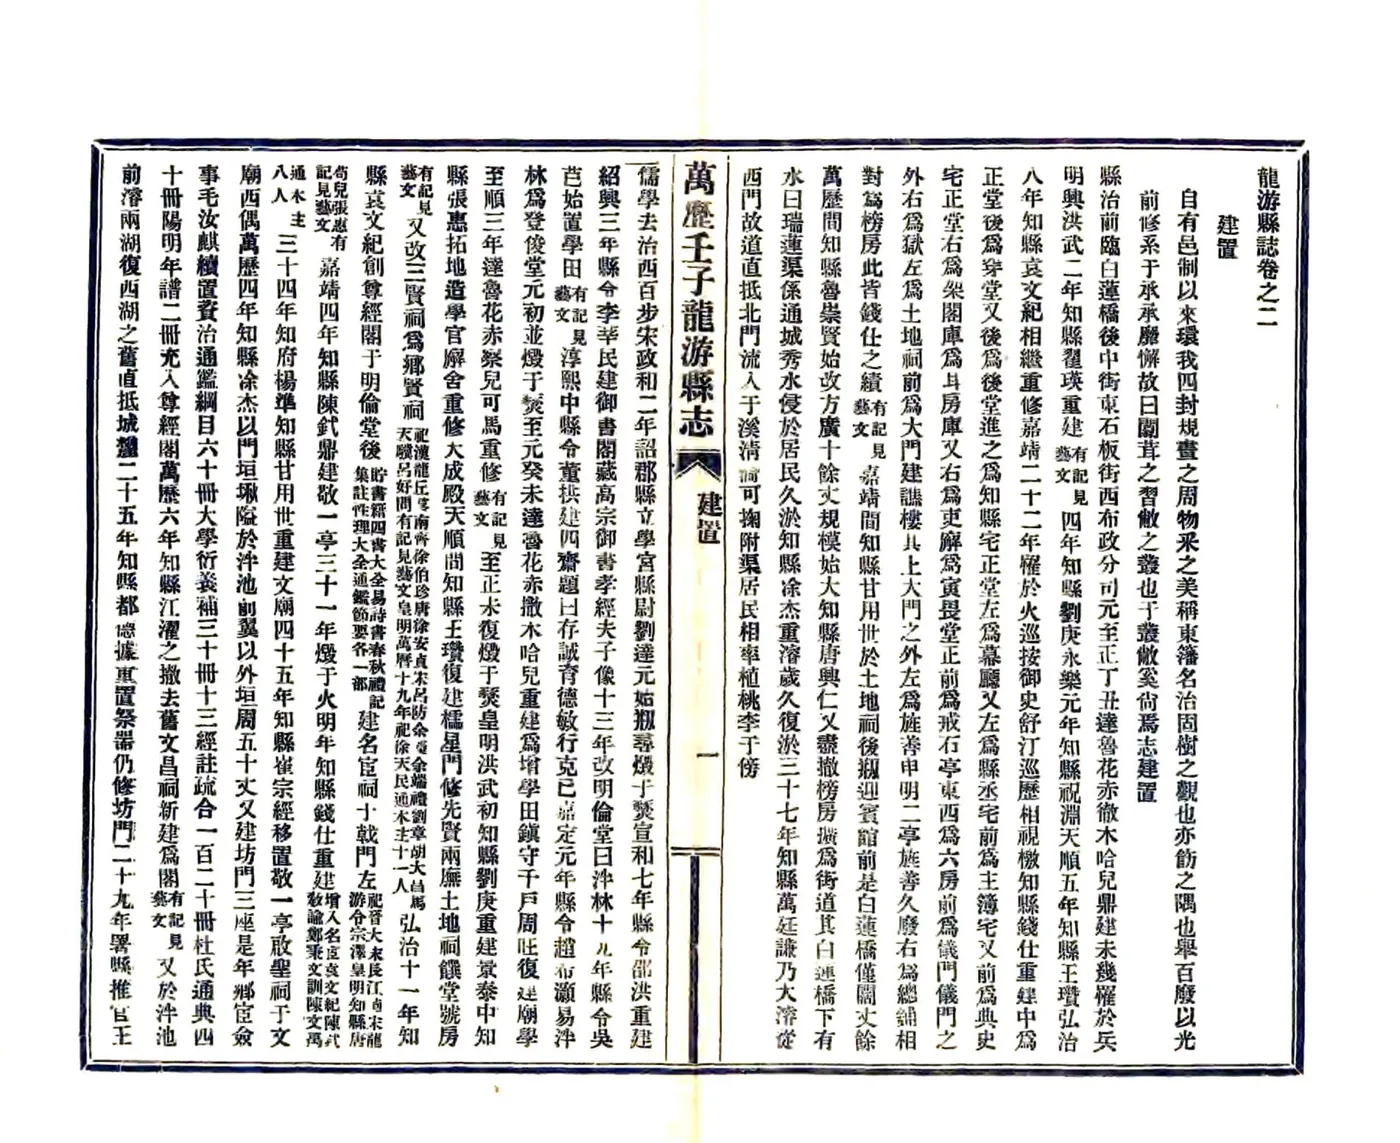 龍游縣誌卷之二
建置
自有邑制以來環我四封規畫之周物采之美稱東籓名治固樹之觀也亦飭之隅也舉百廢以光
前修系于承承靡懈故曰闒茸之習敝之叢也于叢敝奚尙焉志建置
縣治前臨白蓮橋後中街東石板街西布政分司元至正丁丑達魯花赤徹木哈兒鼎建未幾罹於兵
明興洪武二年知縣翟瑛重建有記見藝文四年知縣劉庚永樂元年知縣祝淵天順五年知縣王瓚弘治
八年知縣袁文紀相繼重修嘉靖二十二年罹於火巡按御史舒汀巡歷相視檄知縣錢仕重建中爲
正堂後爲穿堂又後爲後堂進之爲知縣宅正堂左爲幕廳又左爲縣丞宅前爲主簿宅又前爲典史
宅正堂右爲架閣庫爲耳房庫又右爲吏廨爲寅畏堂正前爲戒石亭東西爲六房前爲儀門儀門之
外右爲獄左爲土地祠前爲大門建譙樓其上大門之外左爲旌善申明二亭旌善久廢右爲總鋪相
對爲榜房此皆錢仕之績有記見藝文嘉靖間知縣甘用世於土地祠後剏迎賓館前是白蓮橋僅闊丈餘
萬歷間知縣魯崇賢始改方廣十餘丈規模始大知縣唐興仁又盡撤榜房擴爲街道其白蓮橋下有
水曰瑞蓮渠係通城秀水侵於居民久淤知縣凃杰重濬歲久復淤三十七年知縣萬廷謙乃大濬從
西門故道直抵北門流入于溪淸漪可掬附渠居民相率植桃李于傍
萬歷壬子龍游縣志
建置
一
儒學去治西百步宋政和二年詔郡縣立學宮縣尉劉達元始剏尋燬于燹宣和七年縣令邵洪重建
紹興三年縣令李莘民建御書閣藏高宗御書孝經夫子像十三年改明倫堂曰泮林十九年縣令吳
芑始置學田有記見藝文淳熙中縣令董拱建四齋題曰存誠育德敏行克己嘉定元年縣令趙布灝易泮
林爲登俊堂元初並燬于燹至元癸未達魯花赤撒木哈兒重建爲增學田鎭守千戶周旺復建廟學
至順三年達魯花赤察兒可馬重修有記見藝文至正末復燬于燹皇明洪武初知縣劉庚重建景泰中知
縣張惠拓地造學官廨舍重修大成殿天順間知縣王瓚復建櫺星門修先賢兩廡土地祠饌堂號房
有記見藝文又改三賢祠爲鄉賢祠祀漢龍丘萇南齊徐伯珍唐徐安貞宋呂防余嶸余端禮劉章胡大昌馬天驥呂好問有記見藝文皇明萬曆十九年祀徐天民通木主十一人弘治十一年知
縣袁文紀創尊經閣于明倫堂後貯書籍四書大全易詩書春秋禮記集註性理大全通鑑節要各一部建名宦祠于戟門左祀晉大末長江逌宋龍游令宗澤皇明知縣唐
荀兒張惠有記見藝文嘉靖四年知縣陳鉞鼎建敬一亭三十一年燬于火明年知縣錢仕重建增入名宦袁文紀陳鉞敎諭鄭秉文訓陳文萬
八人通木主三十四年知府楊準知縣甘用世重建文廟四十五年知縣崔宗經移置敬一亭啟聖祠于文
廟西偶萬歷四年知縣凃杰以門垣湫隘於泮池前翼以外垣周五十丈又建坊門三座是年鄉宦僉
事毛汝麒續置資治通鑑綱目六十冊大學衍義補三十冊十三經註疏合一百二十冊杜氏通典四
十冊陽明年譜二冊充入尊經閣萬歷六年知縣江濯之撤去舊文昌祠新建爲閣有記見藝文又於泮池
前濬兩湖復西湖之舊直抵城麓二十五年知縣都 據重置祭器仍修坊門二十九年署縣推官王